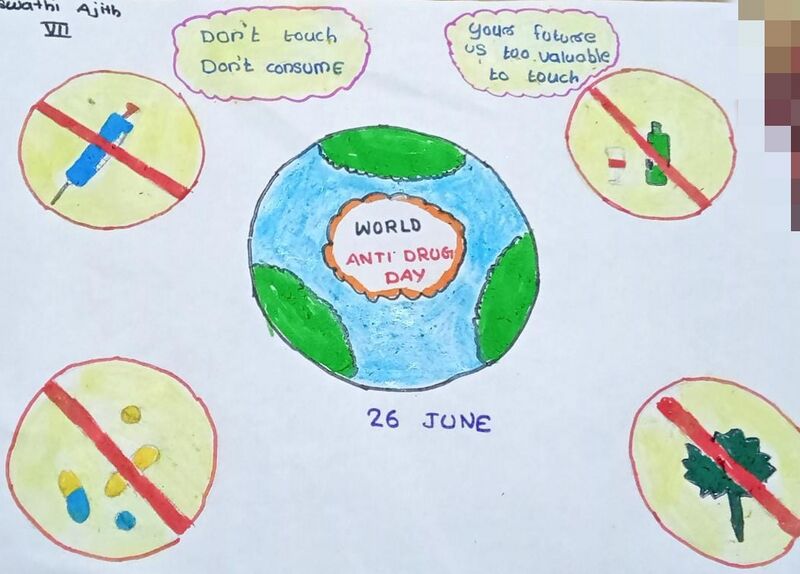 swathi Ajith
VII
Don't touch
Don't consume
your future
us too valuable
to touch
WORLD
ANTI DRUG
DAY
26 JUNE